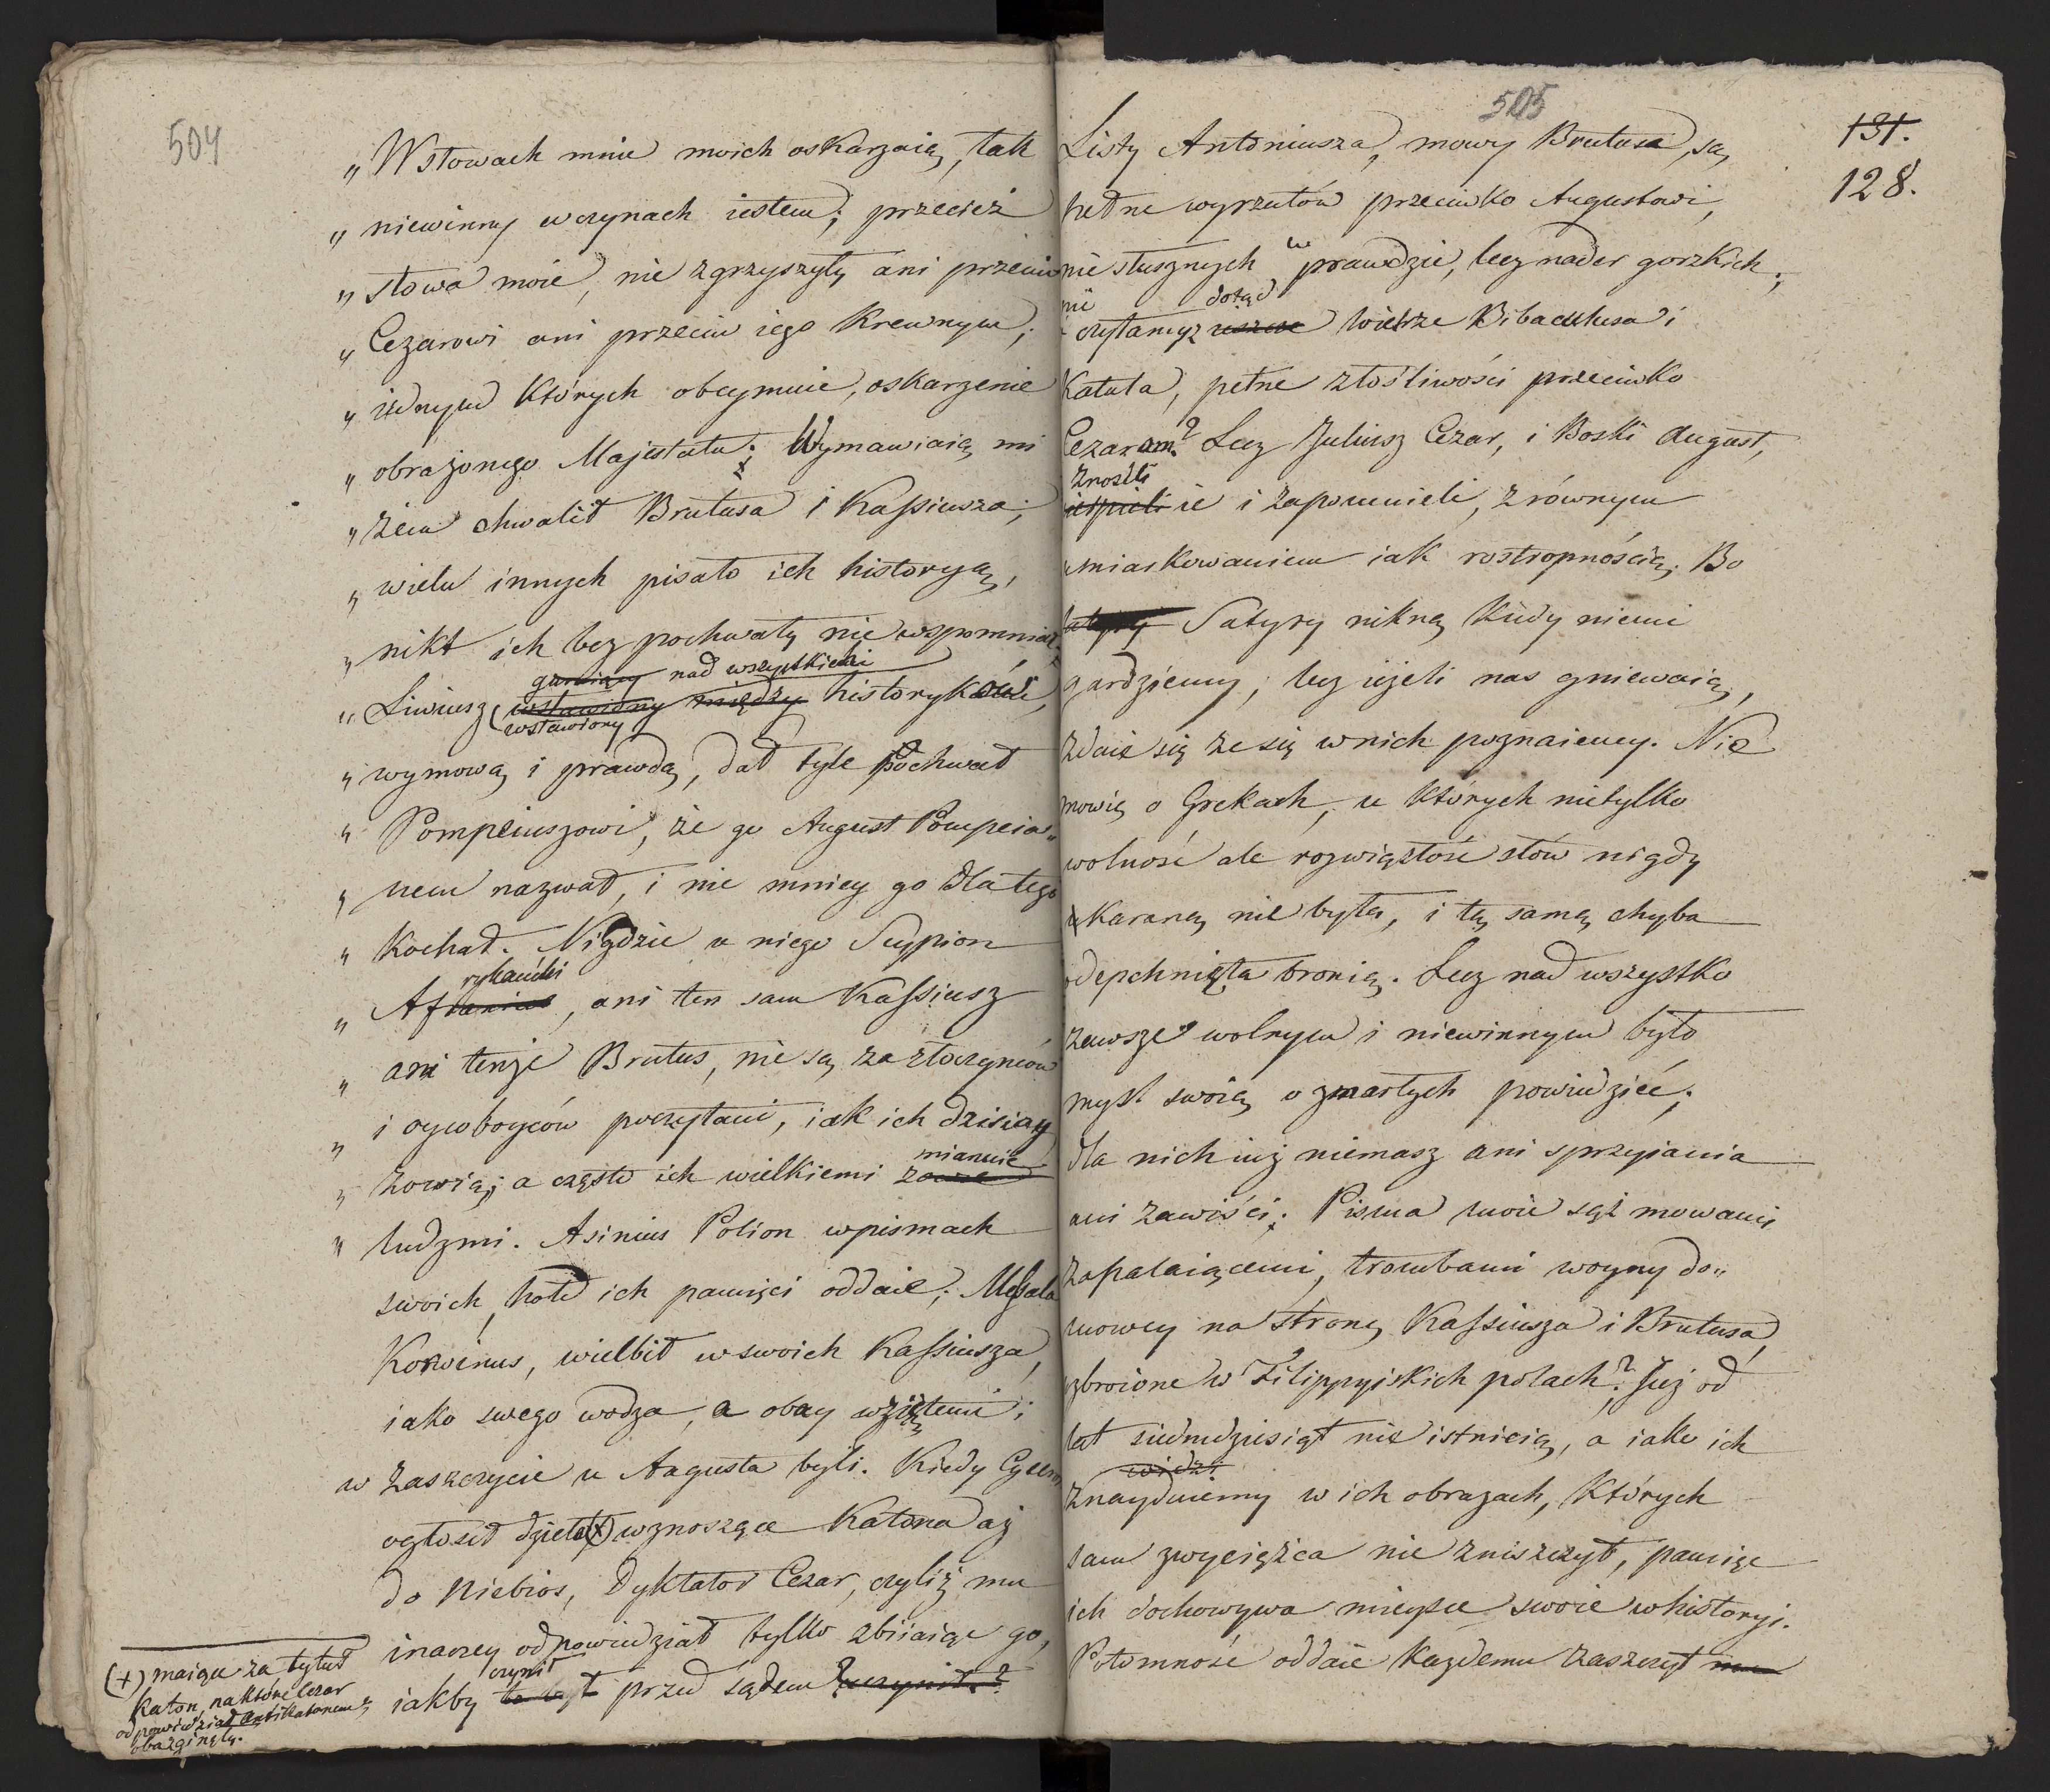 504
„ W słowach mnie moich oskarzaią, tak
„ niewinny w czynach iestem; przecież
„ słowa moie, nie zgrzyszyły ani przeciw
„ Cezarowi ani przeciw iego Krewnym,
„ iednym których obeymuie, oskarzenie
„ obrażonego Majestatu; Wymawiaią mi
„ żem chwalił Brutusa i Kassiusza;
„ wielu innych pisało ich historyą,
„ nikt ich bez pochwały nie wspomniał.
nad wszystkiemi
„ Liwiusz (wsławiony między historyków,
wsławiony
„ wymową i prawdą, dał tyle pochwał
„ Pompeiuszowi, że go August Pompeia„
„ nem nazwał, i nie mniey go dla tego
„ Kochał. Nigdzie u niego Scypion
rykański
„ Afranius, ani ten sam Kassiusz
„ ani tenże Brutus, nie są za złoczyńców
„ i oycoboyców poczytani, iak ich dzisiay
mianuie
„ zowią; a często ich wielkiemi zowie
„ ludzmi. Asinius Polion w pismach
swoich, hołd ich pamięci oddaie; Messala
Korwinus, wielbił w swoich Kassiusza,
iako swego wodza, a obay wziętemi i
w zaszczycie u Augusta byli. Kiedy Cycero
ogłosił dzieło (+) wznoszące Katona aż
do Niebios, Dyktator Cezar, czyliż mu
inaczey odpowiedział tylko zbiiaiąc go,
czynił
iakby to był przed sądem uczynił?
(+) maiące za tytuł
Katon, na które Cezar
odpowiedział Antikatonem,
oba zginęły.
505
131.
128.
Listy Antoniusza, mowy Brutusa, są
pełne wyrzutów przeciwko Augustowi,
nie słusznych w prawdzie, lecz nader gorzkich;
nie dotąd
czytamyż ieszcze wiersze Bibaculusa i
Katula, pełne złośliwości przeciwko
Cezarom? Lecz Juliusz Cezar, i Boski August,
znosili
ie i zapomnieli, z równym
umiarkowaniem iak rostropnością. Bo
satyry Satyry nikną kiedy niemi
gardziemy; lecz ieżeli nas gniewaią,
zdaie się że się w nich poznaiemy. Nie
mowię o Grekach, u których nietylko
wolność ale rozwiązłość słów nigdy
ukaraną nie była, i tą samą chyba
odepchnięta bronią. Lecz nad wszystko
zawsze wolnym i niewinnym było
myśl swoią o zmarłych powiedzieć;
dla nich iuż niemasz ani sprzyiania
ani zawiści; Pisma moie sąż mowami
zapalaiącemi, trombami woyny do„
mowey na stronę Kassiusza i Brutusa,
zbroione w Filippyiskich polach? Już od
lat siedmdziesiąt nie istnieią, a iako ich
widzi
znayduiemy w ich obrazach, których
sam zwycięźca nie zniszczył, pamięć
ich dochowywa mieysce swoie w historyi.
Potomność oddaie każdemu zaszczyt